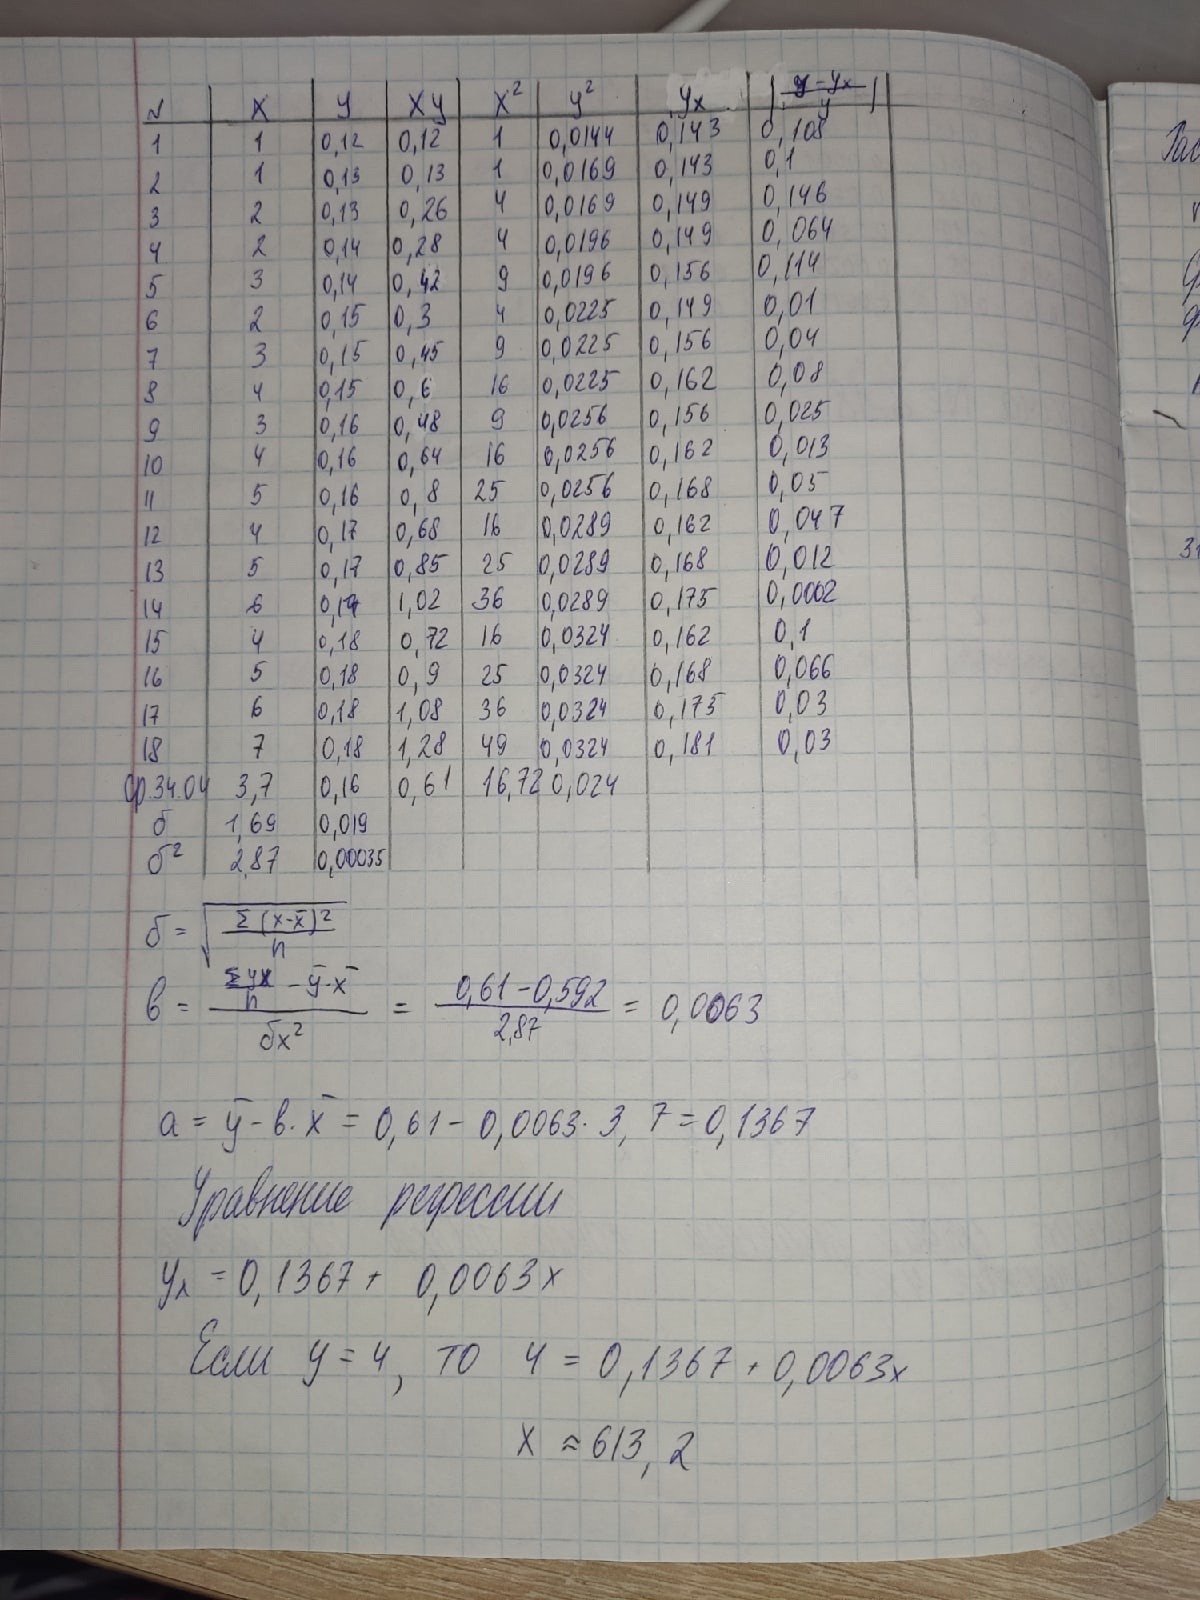 N x y xy x² y² yx |y-yx/y|
1 1 0,12 0,12 1 0,0144 0,143 0,108
2 1 0,13 0,13 1 0,0169 0,143 0,1
3 2 0,13 0,26 4 0,0169 0,149 0,146
4 2 0,14 0,28 4 0,0196 0,149 0,064
5 3 0,14 0,42 9 0,0196 0,156 0,114
6 2 0,15 0,3 4 0,0225 0,149 0,01
7 3 0,15 0,45 9 0,0225 0,156 0,04
8 4 0,15 0,6 16 0,0225 0,162 0,08
9 3 0,16 0,48 9 0,0256 0,156 0,025
10 4 0,16 0,64 16 0,0256 0,162 0,013
11 5 0,16 0,8 25 0,0256 0,168 0,05
12 4 0,17 0,68 16 0,0289 0,162 0,047
13 5 0,17 0,85 25 0,0289 0,168 0,012
14 6 1,02 36 0,0289 0,175 0,0002
15 4 0,18 0,72 16 0,0324 0,162 0,1
16 5 0,18 0,9 25 0,0324 0,168 0,066
17 6 0,18 1,08 36 0,0324 0,175 0,03
18 7 0,18 1,28 49 0,0324 0,181 0,03
3,7 0,16 0,61 16,72 0,024
б 1,69 0,019
б² 2,87 0,00035
б = √(Σ(x-x̄)²/n)
в = (Σyx/n - ȳ·x̄)/бx² = (0,61-0,592)/2,87 = 0,0063
a = ȳ - в·x̄ = 0,61 - 0,0063·3,7 = 0,1367
Уравнение регрессии
yx = 0,1367 + 0,0063x
Если y = 4, то 4 = 0,1367 + 0,0063x
x ≈ 613,2